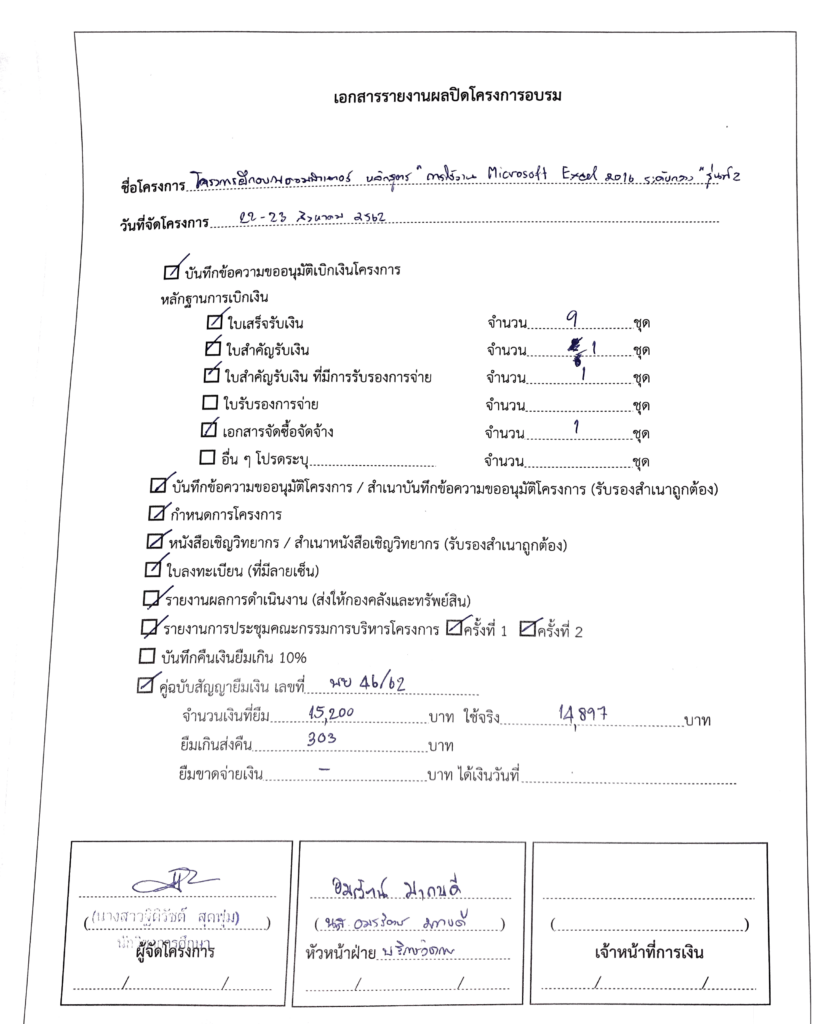 เอกสารรายงานผลปิดโครงการอบรม
ชื่อโครงการ โครงการฝึกอบรมคอมพิวเตอร์ หลักสูตร "การใช้งาน Microsoft Excel 2016 ระดับกลาง" รุ่นที่ 2
วันที่จัดโครงการ 22-23 สิงหาคม 2562
บันทึกข้อความขออนุมัติเบิกเงินโครงการ
หลักฐานการเบิกเงิน
ใบเสร็จรับเงิน จำนวน 9 ชุด
ใบสำคัญรับเงิน จำนวน 1 ชุด
ใบสำคัญรับเงิน ที่มีการรับรองการจ่าย จำนวน 1 ชุด
ใบรับรองการจ่าย จำนวน ชุด
เอกสารจัดซื้อจัดจ้าง จำนวน 1 ชุด
อื่น ๆ โปรดระบุ จำนวน ชุด
บันทึกข้อความขออนุมัติโครงการ / สำเนาบันทึกข้อความขออนุมัติโครงการ (รับรองสำเนาถูกต้อง)
กำหนดการโครงการ
หนังสือเชิญวิทยากร / สำเนาหนังสือเชิญวิทยากร (รับรองสำเนาถูกต้อง)
ใบลงทะเบียน (ที่มีลายเซ็น)
รายงานผลการดำเนินงาน (ส่งให้กองคลังและทรัพย์สิน)
รายงานการประชุมคณะกรรมการบริหารโครงการ ครั้งที่ 1 ครั้งที่ 2
บันทึกคืนเงินยืมเกิน 10%
คู่ฉบับสัญญายืมเงิน เลขที่ 46/62
จำนวนเงินที่ยืม 15,200 บาท ใช้จริง 14,897 บาท
ยืมเกินส่งคืน 303 บาท
ยืมขาดจ่ายเงิน - บาท ได้เงินวันที่
(นางสาว)
ผู้จัดโครงการ
หัวหน้าฝ่าย
เจ้าหน้าที่การเงิน
/ /
/ /
/ /